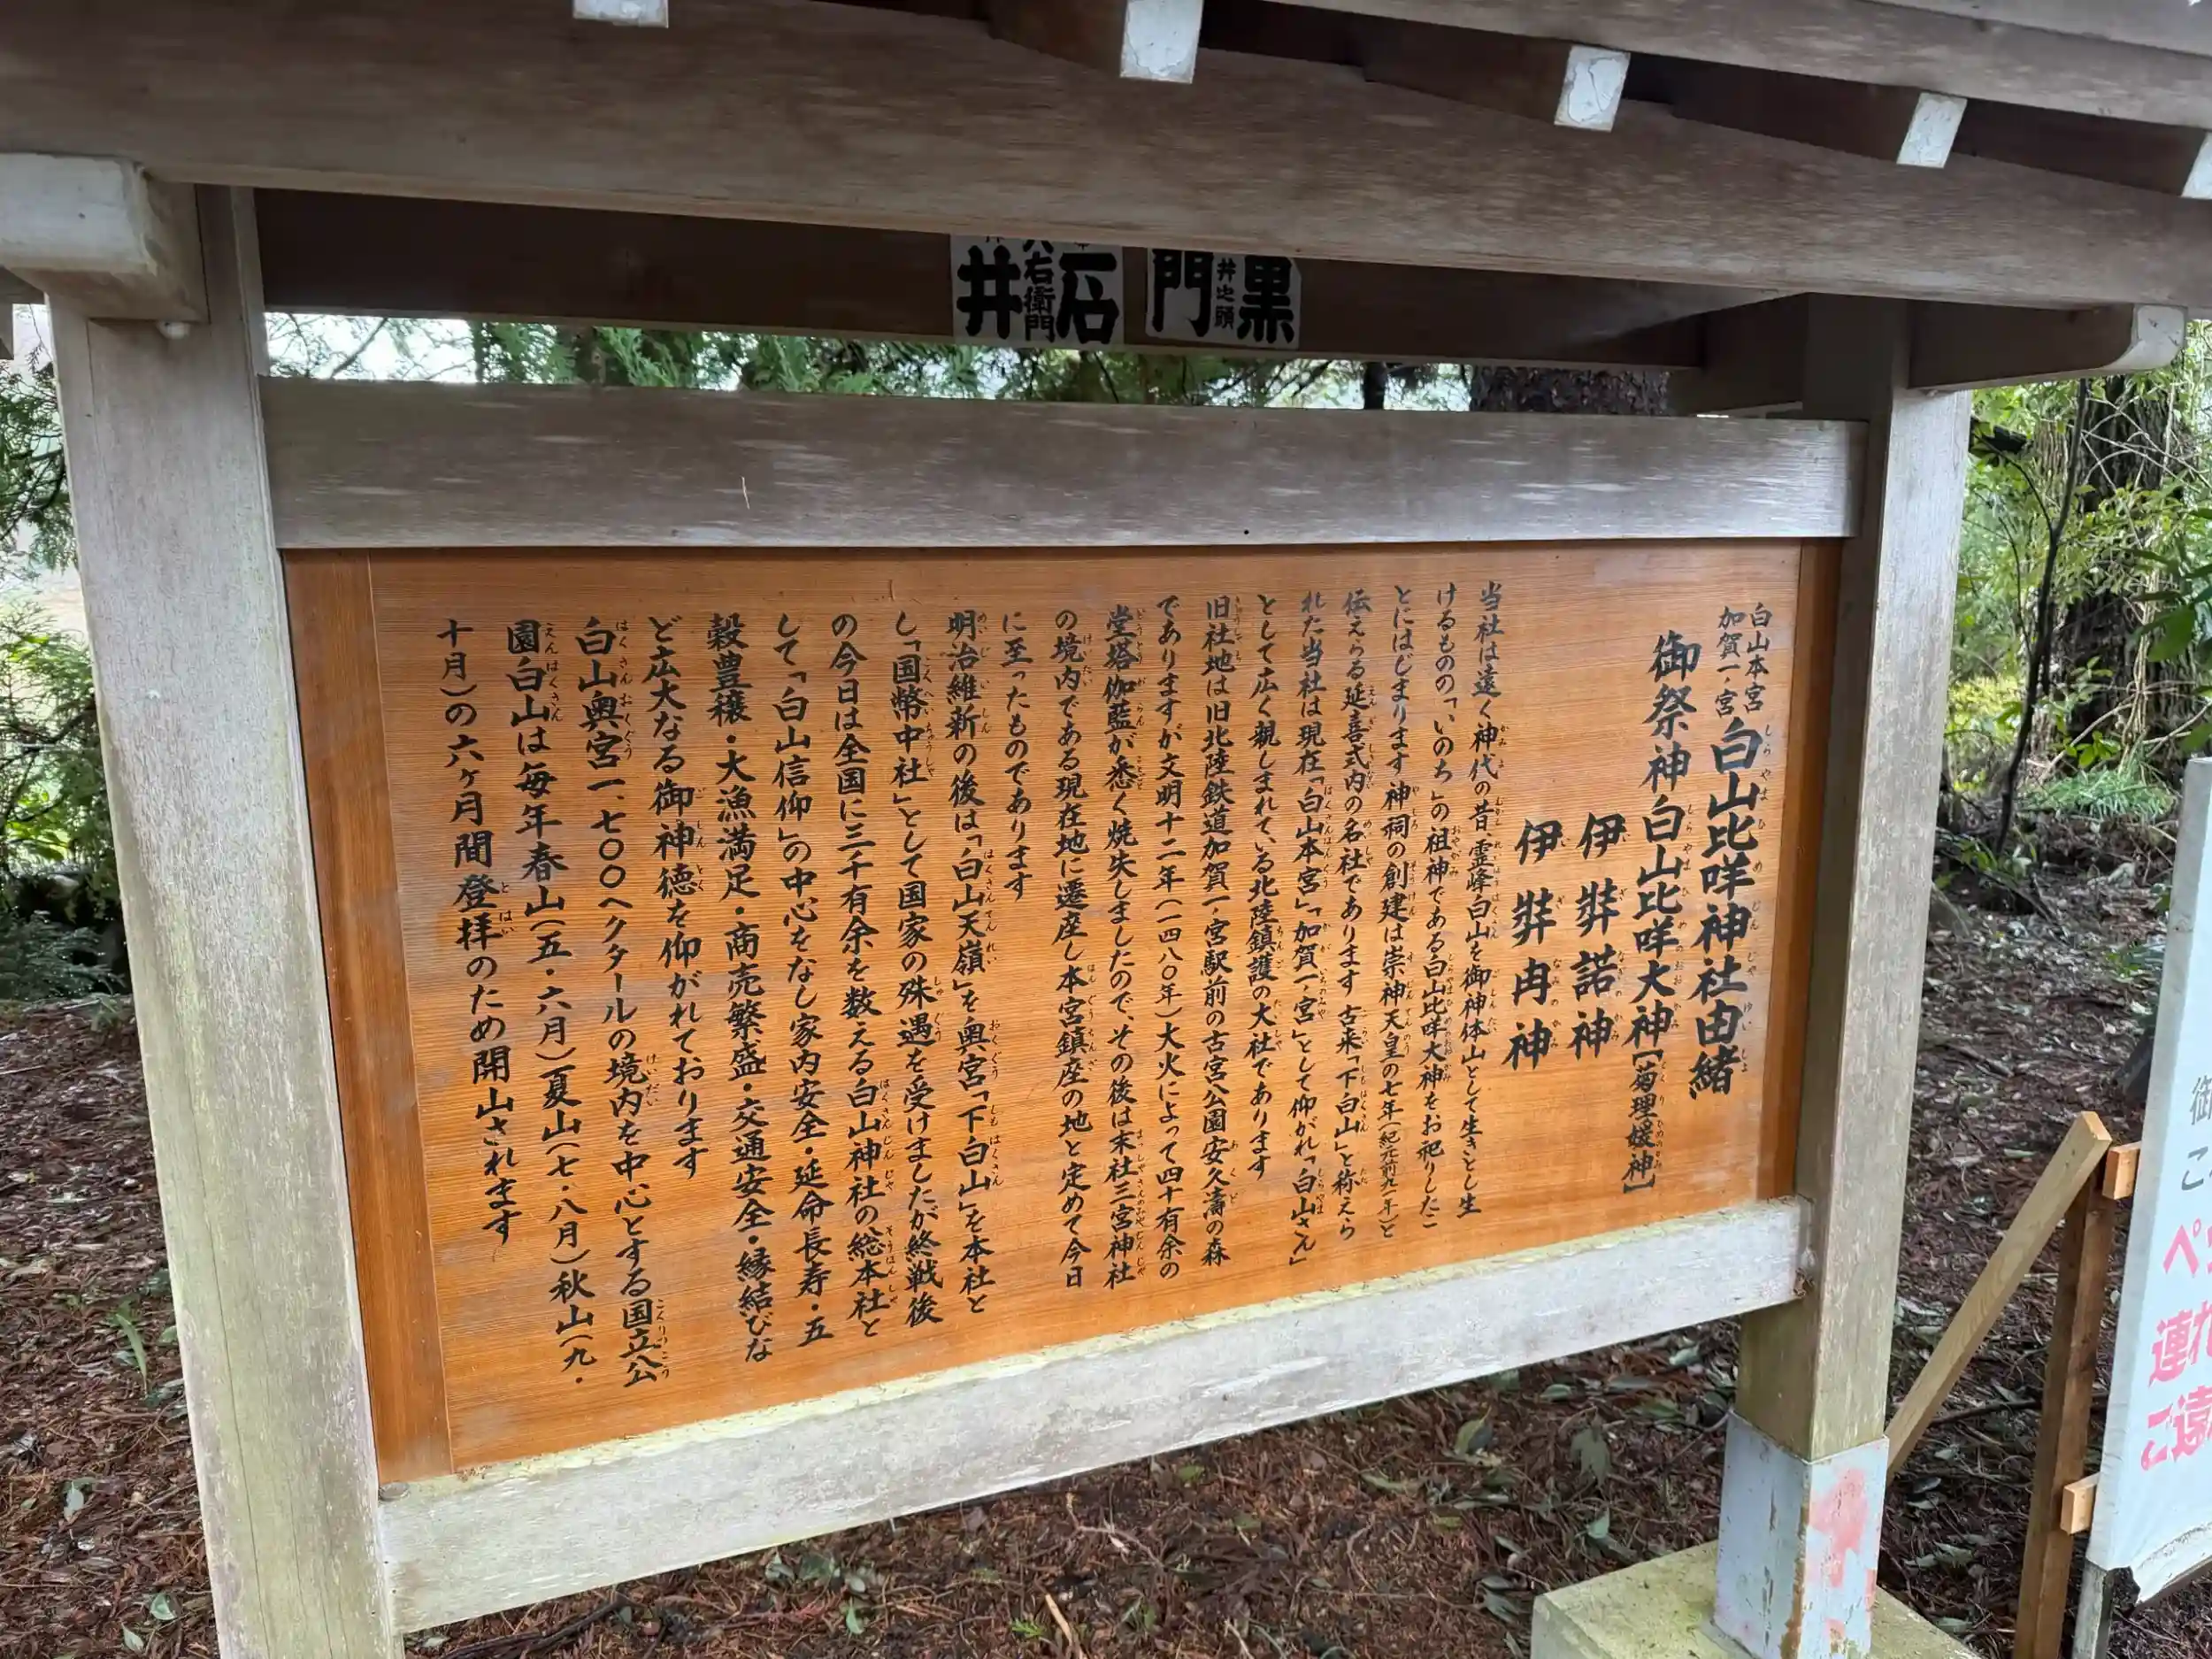 黒
井之頭
門
石
右衛門
井
白山本宮
加賀一ノ宮
白山比咩神社由緒
御祭神白山比咩大神【菊理媛神】
伊弉諾神
伊弉冉神
当社は遠く神代の昔、霊峰白山を御神体山として生きとし生
けるものの「いのち」の祖神である白山比咩大神をお祀りしたこ
とにはじまります 神祠の創建は崇神天皇の七年(紀元前九一年)と
伝えらる延喜式内の名社であります 古来「下白山」と称えら
れた当社は現在「白山本宮」「加賀一ノ宮」として仰がれ「白山さん」
として広く親しまれている北陸鎮護の大社であります
旧社地は旧北陸鉄道加賀一ノ宮駅前の古宮公園安久濤の森
でありますが文明十二年(一四八〇年)大火によって四十有余の
堂塔伽藍が悉く焼失しましたので、その後は末社三宮神社
の境内である現在地に遷座し本宮鎮座の地と定めて今日
に至ったものであります
明治維新の後は「白山天嶺」を奥宮「下白山」を本社と
し「国幣中社」として国家の殊遇を受けましたが終戦後
の今日は全国に三千有余を数える白山神社の総本社と
して「白山信仰」の中心をなし家内安全・延命長寿・五
穀豊穣・大漁満足・商売繁盛・交通安全・縁結びな
ど広大なる御神徳を仰がれております
白山奥宮一、七〇〇ヘクタールの境内を中心とする国立公
園白山は毎年春山(五・六月)夏山(七・八月)秋山(九・
十月)の六ヶ月間登拝のため開山されます
御
ペ
連れ
ご遠